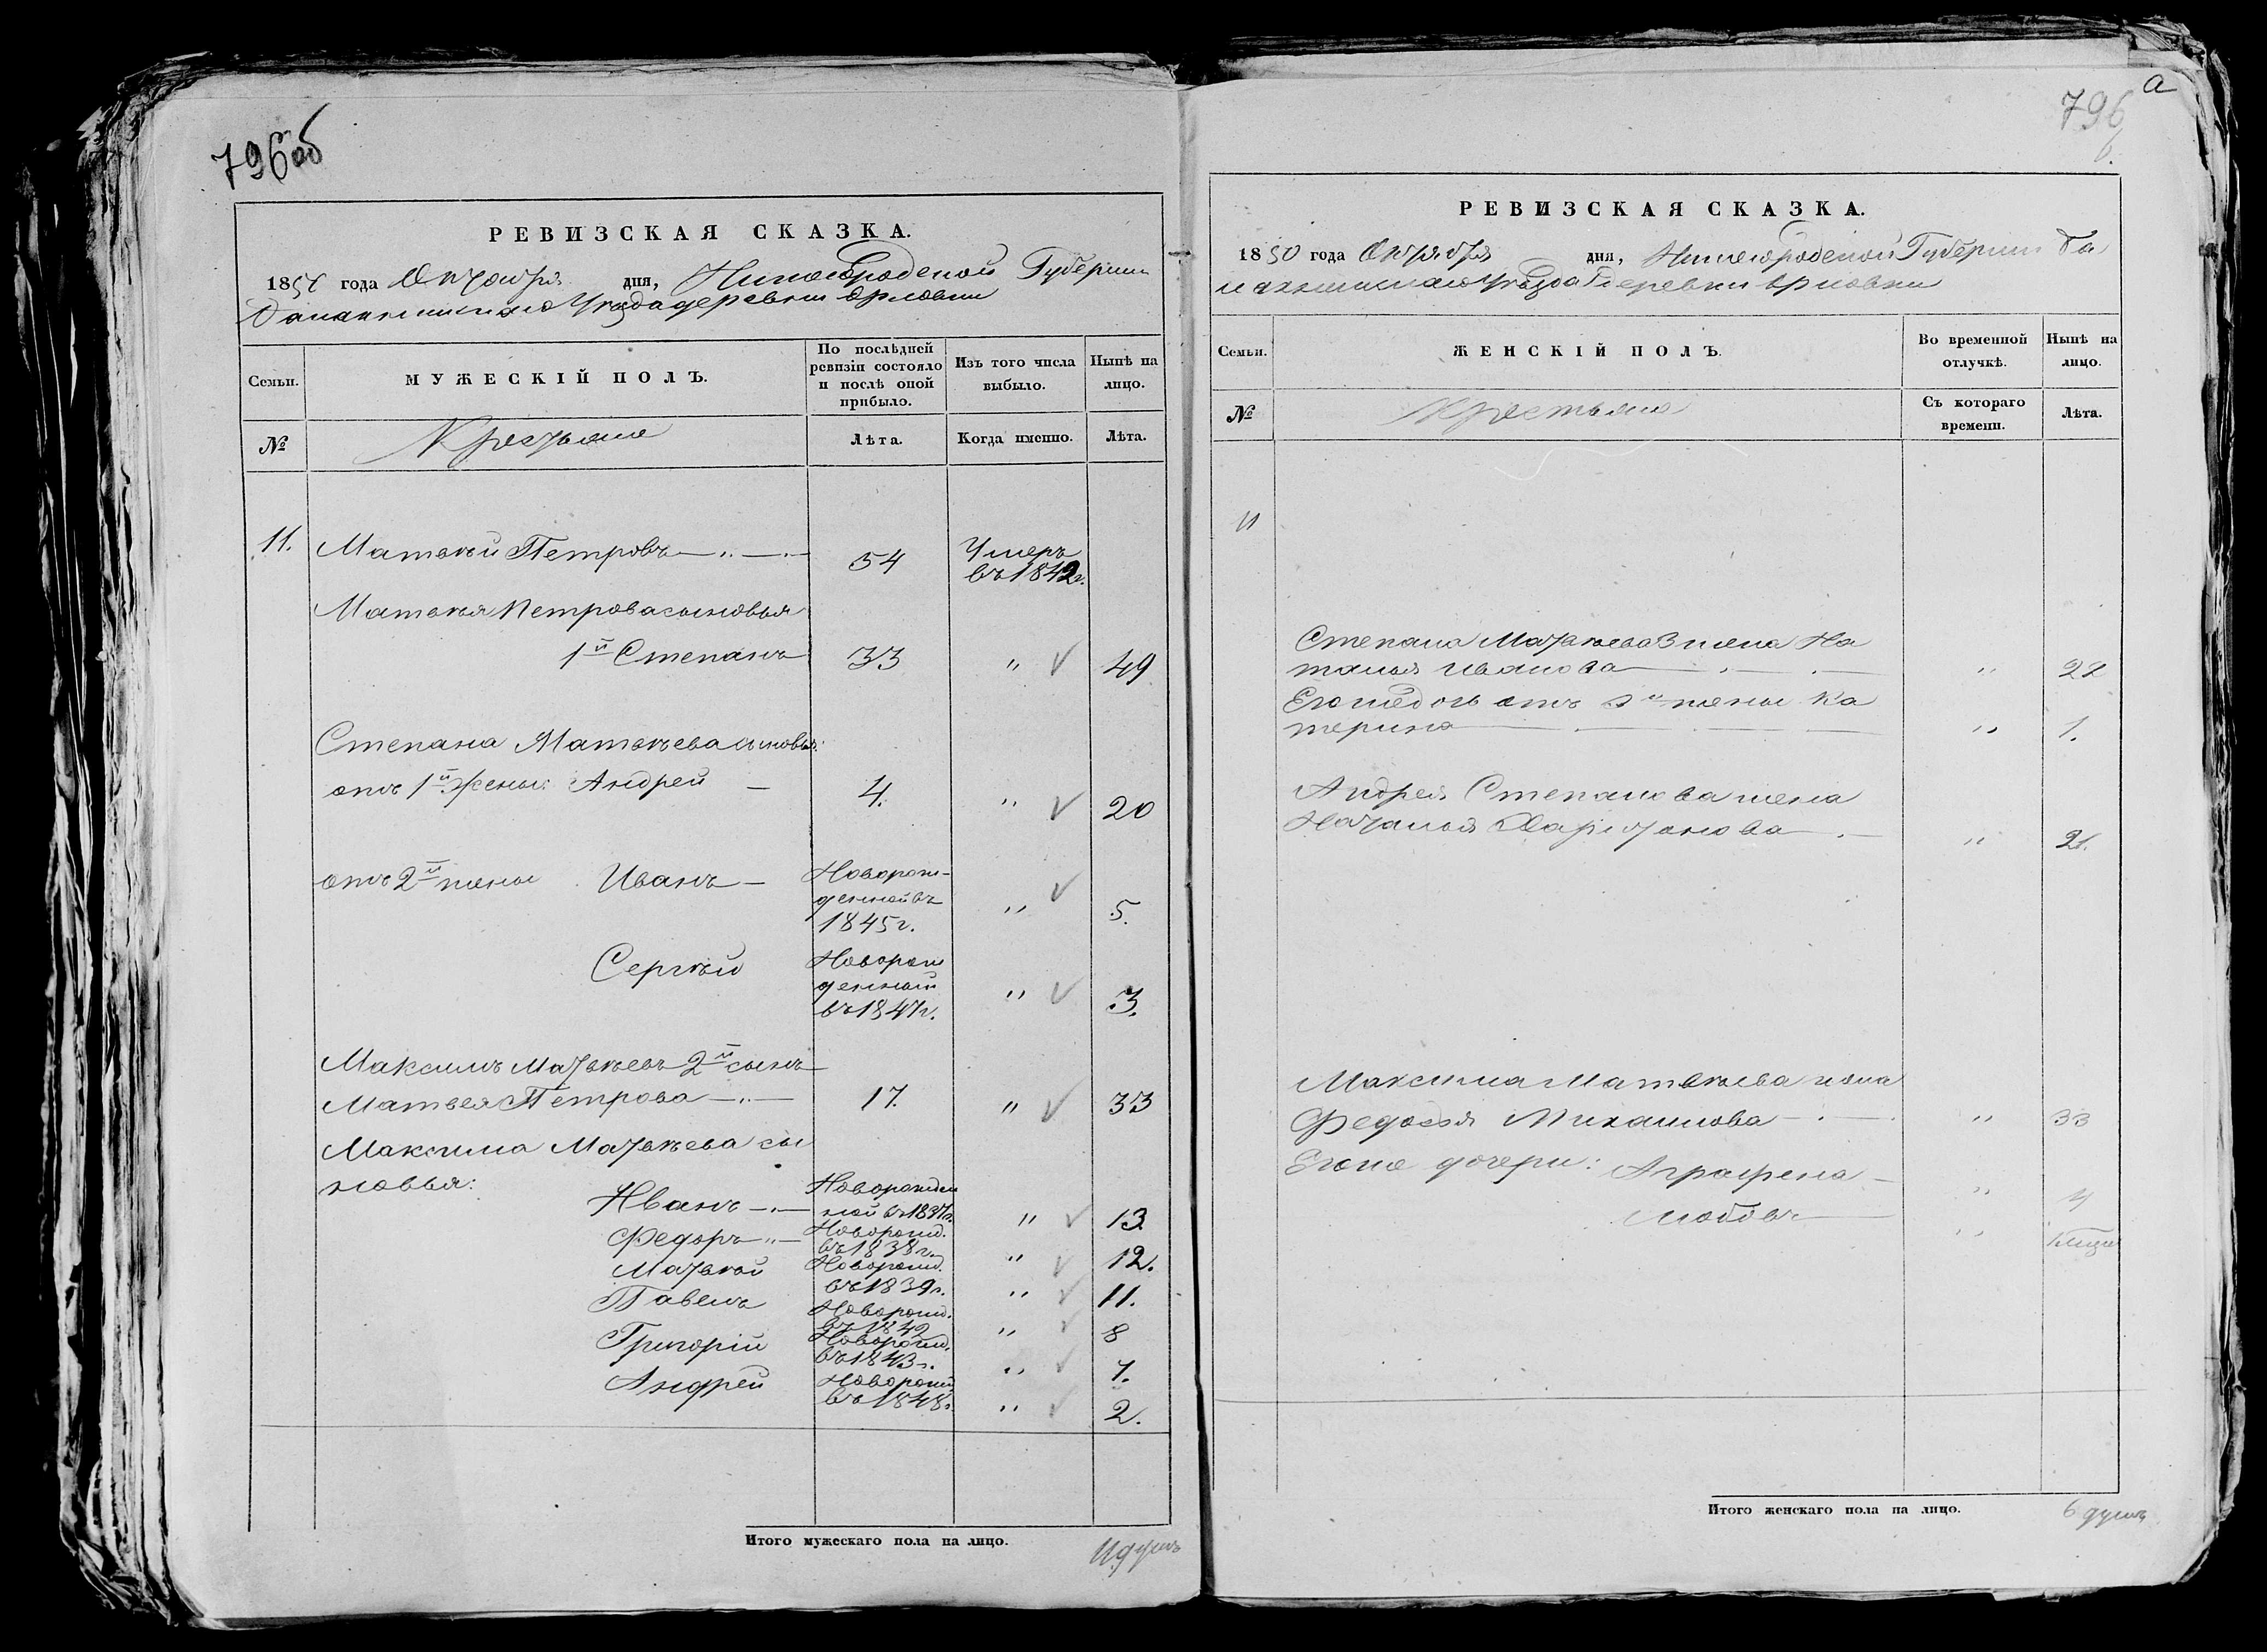 796об
РЕВИЗСКАЯ СКАЗКА.
1850 года Октября дня, Нижегородской Губернии
Балахнинскаго Уѣзда деревни Орловки
Семьи.
МУЖЕСКІЙ ПОЛЪ.
По послѣдней ревизіи состояло и послѣ оной прибыло.
Изъ того числа выбыло.
Нынѣ на лицо.
№
Крестьяне
Лѣта.
Когда именно.
Лѣта.
11. Матвѣй Петровъ 54 Умеръ въ 1842г.
Матвѣя Петрова сыновья
1й Степанъ 33 " 49
Степана Матвѣева сыновья:
отъ 1й Жены: Андрей 4. " 20
отъ 2й жены Иванъ Новорожденной въ 1845г. " 5.
Сергѣй Новорожденный въ 1847г. " 3.
Максимъ Матвѣевъ 2й сынъ
Матвея Петрова 17. " 33
Максима Матвѣева сы
новья:
Иванъ Новорожденной въ 1837г. " 13
Федоръ Новорожд. въ 1838г. " 12.
Матвѣй Новорожд. въ 1839г. " 11.
Павелъ Новорожд. въ 1842 " 8
Григорій Новорожд. въ 1843г. " 7.
Андрей Новорожд въ 1848г. " 2.
Итого мужескаго пола на лицо. 11 душъ
а
796
РЕВИЗСКАЯ СКАЗКА.
1850 года Октября дня, Нижегородской Губернии Ба
лахнинскаго Уѣзда Деревни Орловки
Семьи.
ЖЕНСКІЙ ПОЛЪ.
Во временной отлучкѣ.
Нынѣ на лицо.
№
Крестьяне
Съ котораго времени.
Лѣта.
11
Степана Матвѣева жена На
талья Иванова " 22
Его же дочь отъ жены Ка
терина " 1.
Андрея Степанова жена
Наталья Харитонова " 21.
Максима Матвѣева жена
Федосья Михаилова " 33
Его же дочери: Аграфена " 4
Любовь "
Итого женскаго пола на лицо. 6 душъ